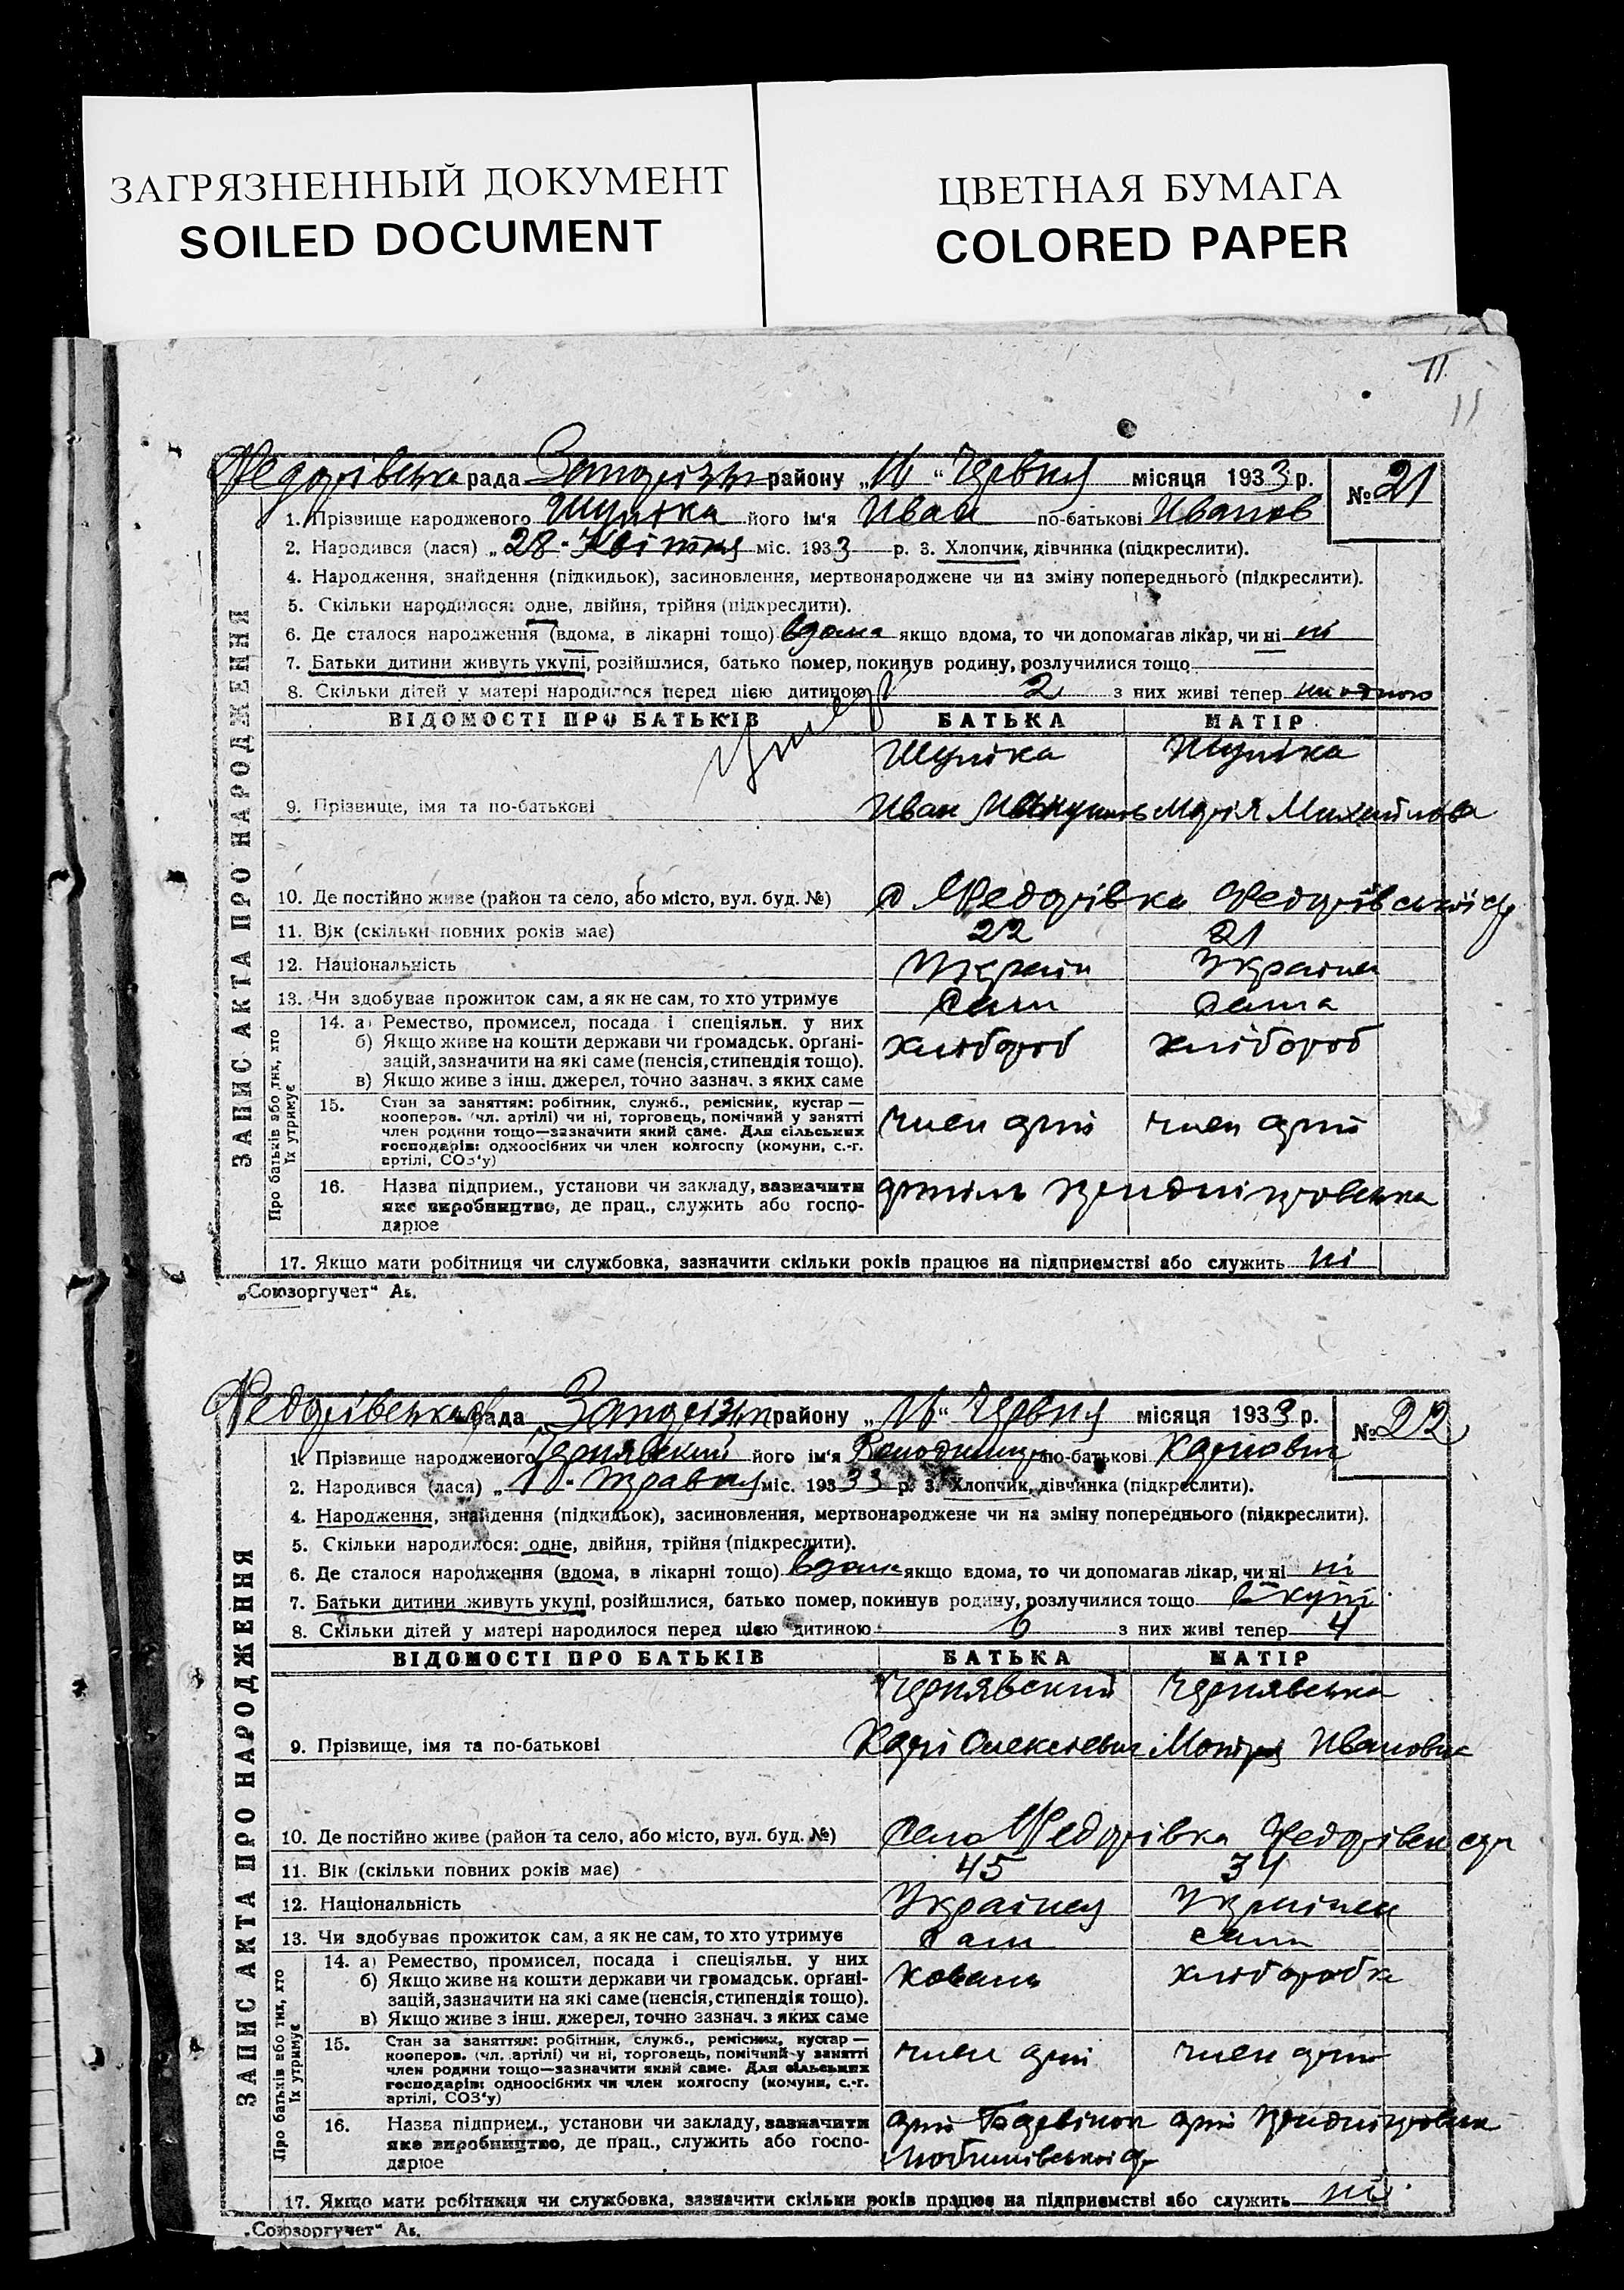 ЗАГРЯЗНЕННЫЙ ДОКУМЕНТ
SOILED DOCUMENT
ЦВЕТНАЯ БУМАГА
COLORED PAPER
11
Федорівська рада району „16“ Червня місяця 1933 р. № 21
ЗАПИС АКТА ПРО НАРОДЖЕННЯ
1. Прізвище народженого Шуліка його ім'я Иван по-батькові Иванов
2. Народився (лася) „28“ Квітня міс. 1933 р. 3. Хлопчик, дівчинка (підкреслити).
4. Народження, знайдення (підкидьок), засиновлення, мертвонароджене чи на зміну попереднього (підкреслити).
5. Скільки народилося: одне, двійня, трійня (підкреслити).
6. Де сталося народження (вдома, в лікарні тощо) вдома якщо вдома, то чи допомагав лікар, чи ні ні
7. Батьки дитини живуть укупі, розійшлися, батько помер, покинув родину, розлучилися тощо
8. Скільки дітей у матері народилося перед цією дитиною 2 з них живі тепер
ВІДОМОСТІ ПРО БАТЬКІВ БАТЬКА МАТІР
Шуліка Шуліка
9. Прізвище, імя та по-батькові Иван Марія Михайлова
10. Де постійно живе (район та село, або місто, вул. буд. №) с Федорівка Федорівської с/р
11. Вік (скільки повних років має) 22 21
12. Національність Україн Україна
13. Чи здобуває прожиток сам, а як не сам, то хто утримує Сам Сама
Про батьків або тих, хто їх утримує
14. а) Ремество, промисел, посада і спеціяльн. у них
б) Якщо живе на кошти держави чи громадськ. органі-
зацій, зазначити на які саме (пенсія, стипендія тощо). хлібороб хлібороб
в) Якщо живе з інш. джерел, точно зазнач. з яких саме
15. Стан за заняттям: робітник, служб., ремісник, кустар —
кооперов. (чл. артілі) чи ні, торговець, помічний у занятті
член родини тощо—зазначити який саме. Для сільських член артілі член артілі
господарів: одноосібних чи член колгоспу (комуни, с.-г.
артілі, СОЗ'у)
16. Назва підприєм., установи чи закладу, зазначити артіль Придніпровська
яке виробництво, де прац., служить або госпо-
дарює
17. Якщо мати робітниця чи службовка, зазначити скільки років працює на підприємстві або служить ні
„Союзоргучет“ Ає.
Федорівська рада району „16“ Червня місяця 1933 р. № 22
ЗАПИС АКТА ПРО НАРОДЖЕННЯ
1. Прізвище народженого Чернявский його ім'я Володимир по-батькові Карпович
2. Народився (лася) Травня міс. 19333 р. 3. Хлопчик, дівчинка (підкреслити).
4. Народження, знайдення (підкидьок), засиновлення, мертвонароджене чи на зміну попереднього (підкреслити).
5. Скільки народилося: одне, двійня, трійня (підкреслити).
6. Де сталося народження (вдома, в лікарні тощо) вдома якщо вдома, то чи допомагав лікар, чи ні ні
7. Батьки дитини живуть укупі, розійшлися, батько помер, покинув родину, розлучилися тощо вкупі
8. Скільки дітей у матері народилося перед цією дитиною 6 з них живі тепер 4
ВІДОМОСТІ ПРО БАТЬКІВ БАТЬКА МАТІР
Чернявский Чернявська
9. Прізвище, імя та по-батькові Олексієвич Ивановна
10. Де постійно живе (район та село, або місто, вул. буд. №) Село Федорівка с/р
11. Вік (скільки повних років має) 45 34
12. Національність Українец Українец
13. Чи здобуває прожиток сам, а як не сам, то хто утримує Сам сама
Про батьків або тих, хто їх утримує
14. а) Ремество, промисел, посада і спеціяльн. у них
б) Якщо живе на кошти держави чи громадськ. органі- коваль хліборобка
зацій, зазначити на які саме (пенсія, стипендія тощо).
в) Якщо живе з інш. джерел, точно зазнач. з яких саме
15. Стан за заняттям: робітник, служб., ремісник, кустар —
кооперов. (чл. артілі) чи ні, торговець, помічний у занятті член артілі член артілі
член родини тощо—зазначити який саме. Для сільських
господарів: одноосібних чи член колгоспу (комуни, с.-г.
артілі, СОЗ'у)
16. Назва підприєм., установи чи закладу, зазначити
яке виробництво, де прац., служить або госпо-
дарює
17. Якщо мати робітниця чи службовка, зазначити скільки років працює на підприємстві або служить ні
„Союзоргучет“ Ає.